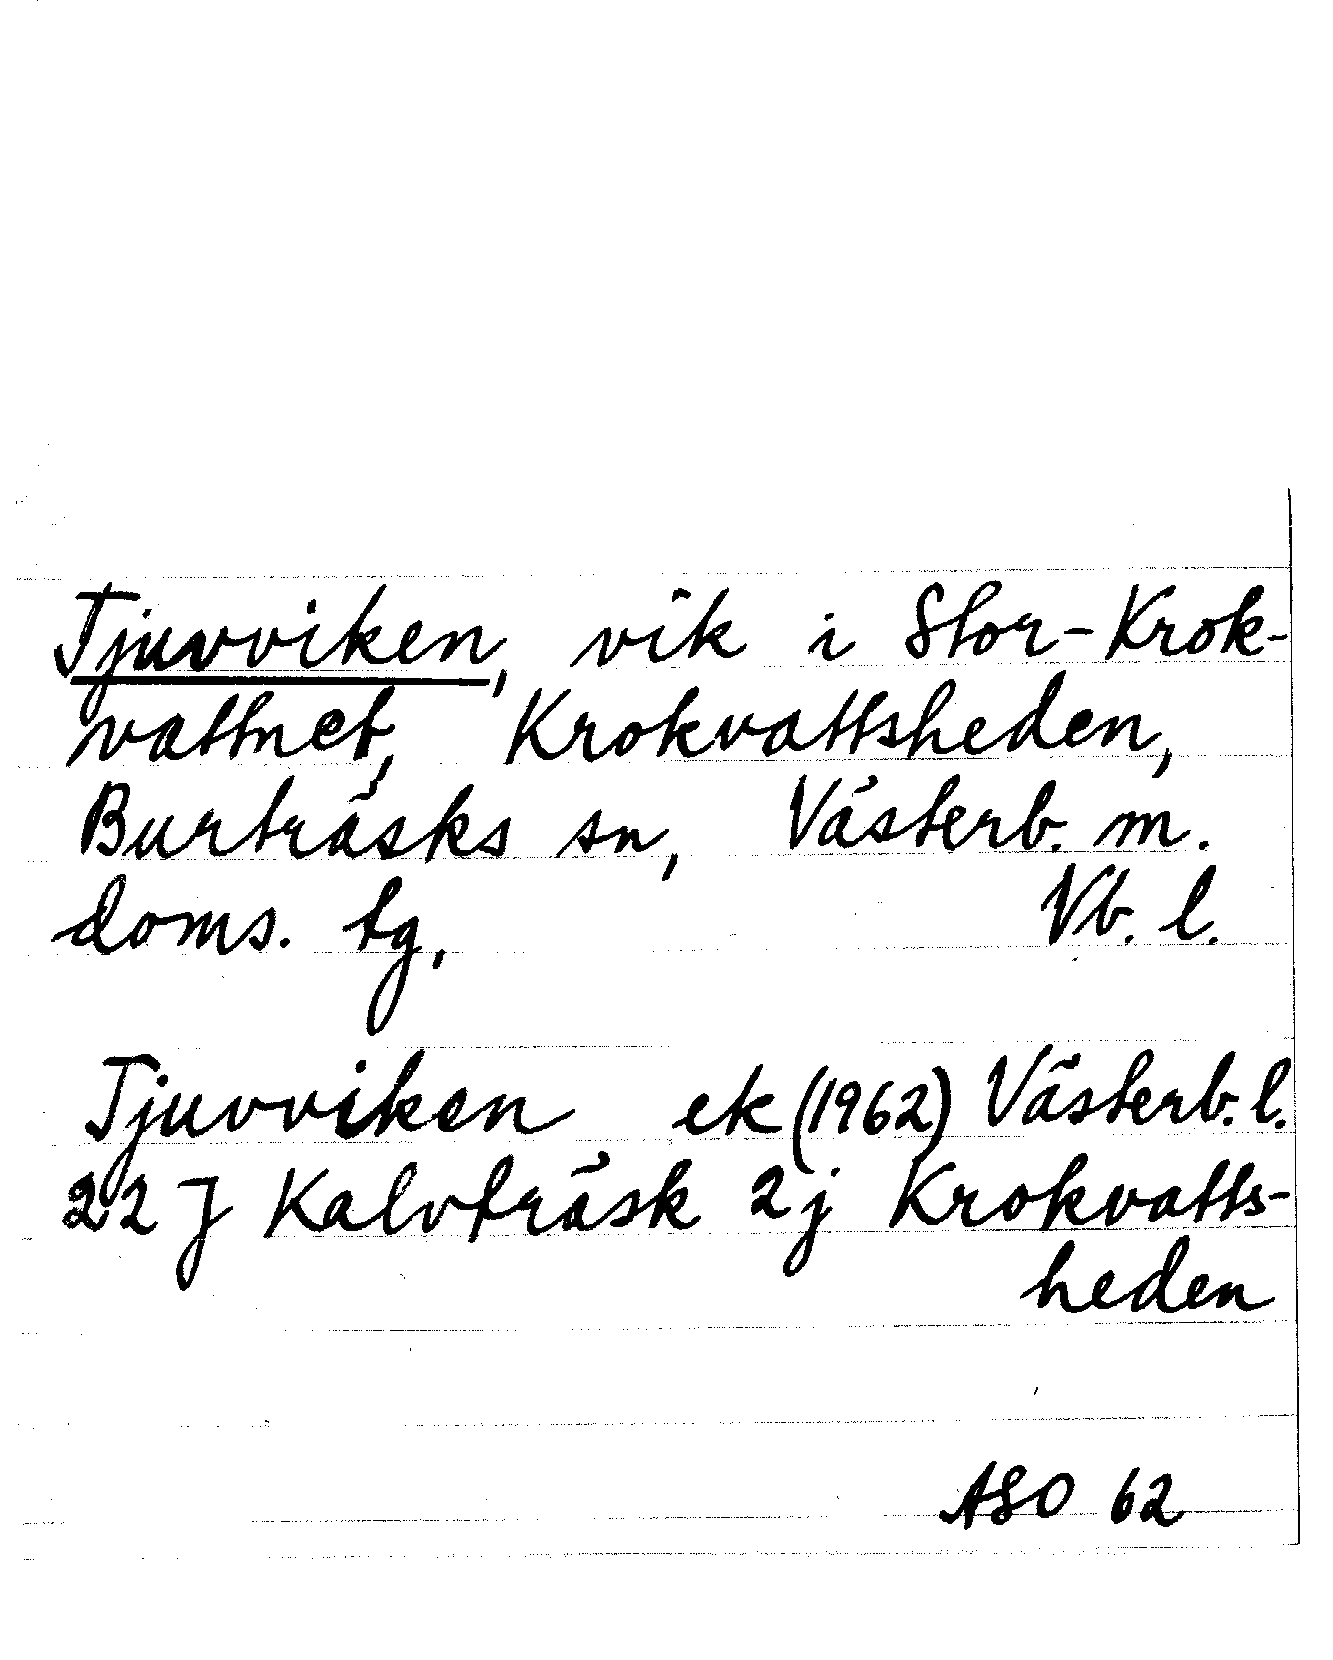 Tjuvviken, vik i Stor-Krok-
vattnet, Krokvattsheden,
Burträsks sn, Västerb. m.
doms. tg, Vb. l.
Tjuvviken ek (1962) Västerb. l.
22 J Kalvträsk 2j Krokvatts-
heden
ASO 62